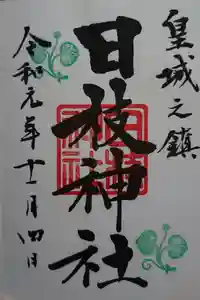 皇城之鎮
日枝神社
令和元年十一月四日